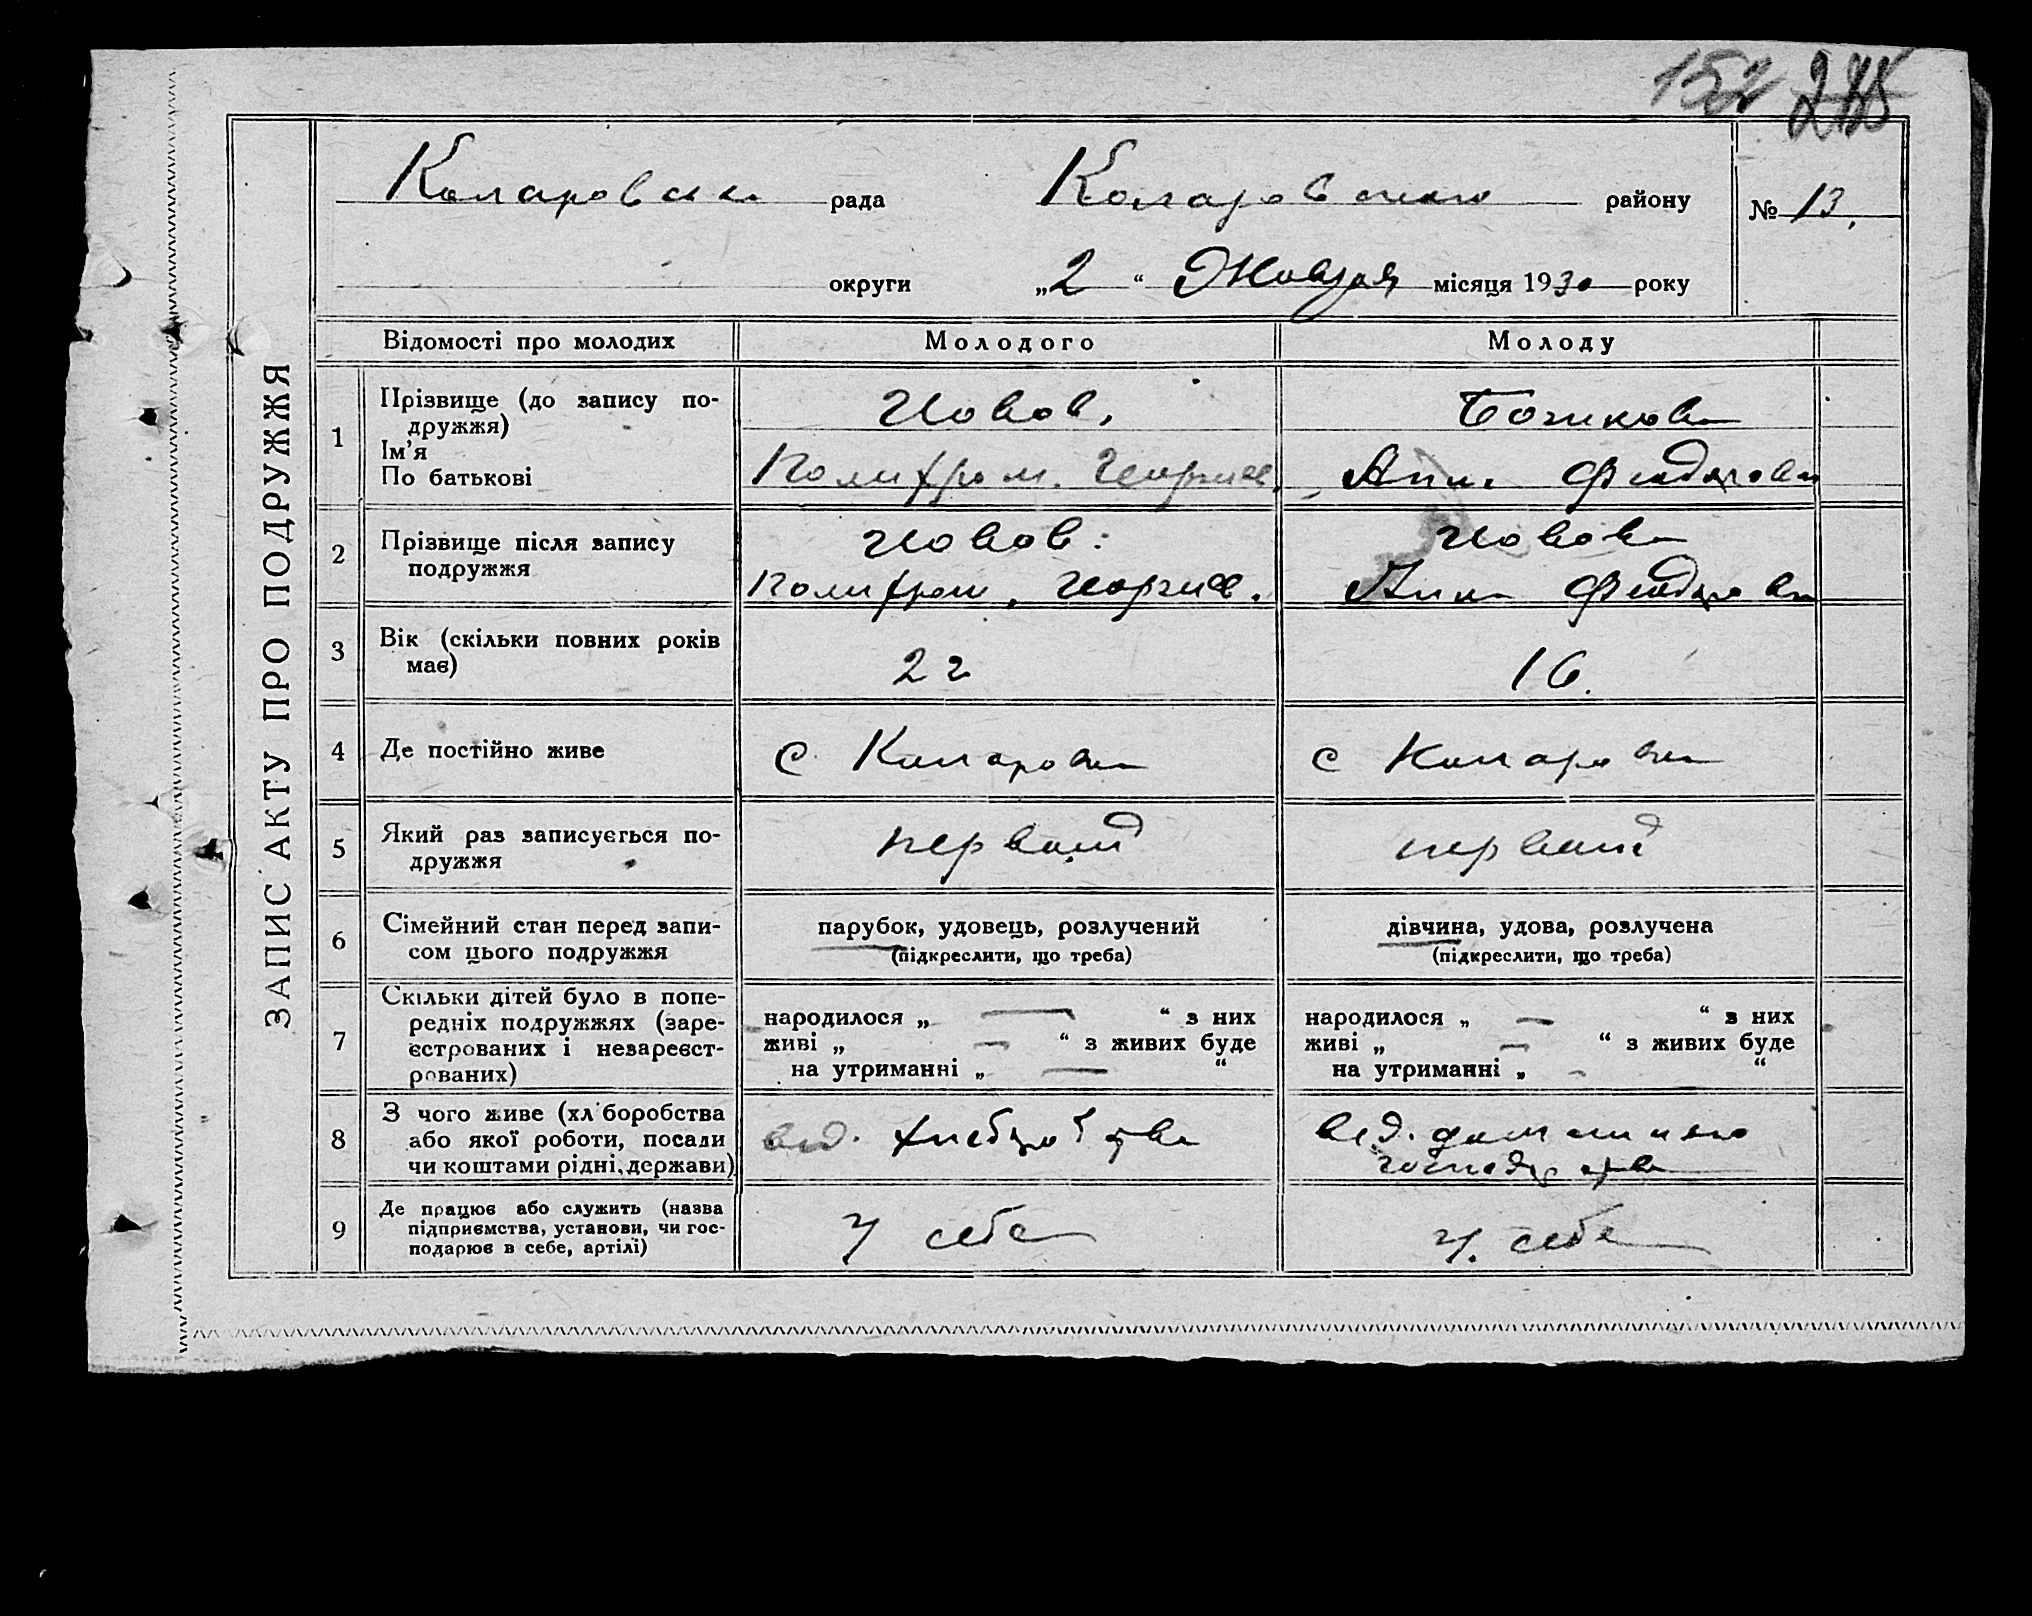 152 245
Коларовська рада Коларовського району № 13.
округи „2“ Жовтня місяця 1930 року
ЗАПИС АКТУ ПРО ПОДРУЖЖЯ
Відомості про молодих Молодого Молоду
1 Прізвище (до запису по-
дружжя)
Ім'я
По батькові
Новов.
Георгиев.
Божкова
Анна Феодорова
2 Прізвище після запису
подружжя
Новов.
Георгиев.
Новова
Анна Феодорова
3 Вік (скільки повних років
має)
22
16.
4 Де постійно живе
с. Коларовка
с Коларовка
5 Який раз записується по-
дружжя
первый
первый
6 Сімейний стан перед запи-
сом цього подружжя
парубок, удовець, розлучений
(підкреслити, що треба)
дівчина, удова, розлучена
(підкреслити, що треба)
7 Скільки дітей було в попе-
редніх подружжях (заре-
єстрованих і незареєст-
рованих)
народилося „ — “ з них
живі „ — “ з живих буде
на утриманні „ — “
народилося „ — “ з них
живі „ — “ з живих буде
на утриманні „ - “
8 З чого живе (хліборобства
або якої роботи, посади
чи коштами рідні, держави)
від. хліборобства
від. домашнього
господарства
9 Де працює або служить (назва
підприємства, установи, чи гос-
подарює в себе, артілі)
У себе
У. себе